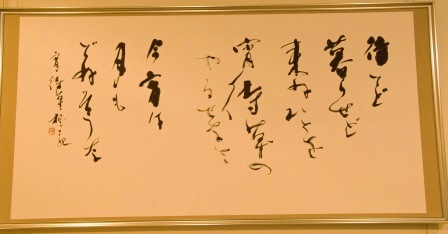 待てど
暮らせど
来ぬひとを
宵待草の
やるせなさ
今宵は
月も
でぬさうな
宵待草